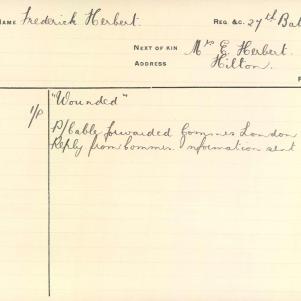 NAME Frederick Herbert. REG &c. 27th Bat
NEXT OF KIN Mrs E. Herbert.
ADDRESS Hilton.
"Wounded"
1/P P/Cable forwarded Commrs London
Reply from Commrs. information sent